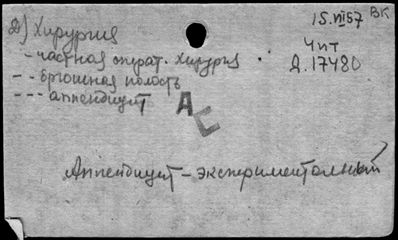 2) Хирургия
- частная операт. хирургия
- - брюшная полость
- - - аппендицит
15.VII57 ВК
Чит
Д.17480
АС
Аппендицит - экспериментальный